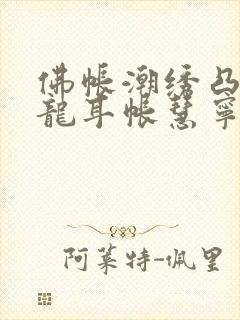 佛帐潮绣凸
龍耳帐慧寧
阿莱特-佩里